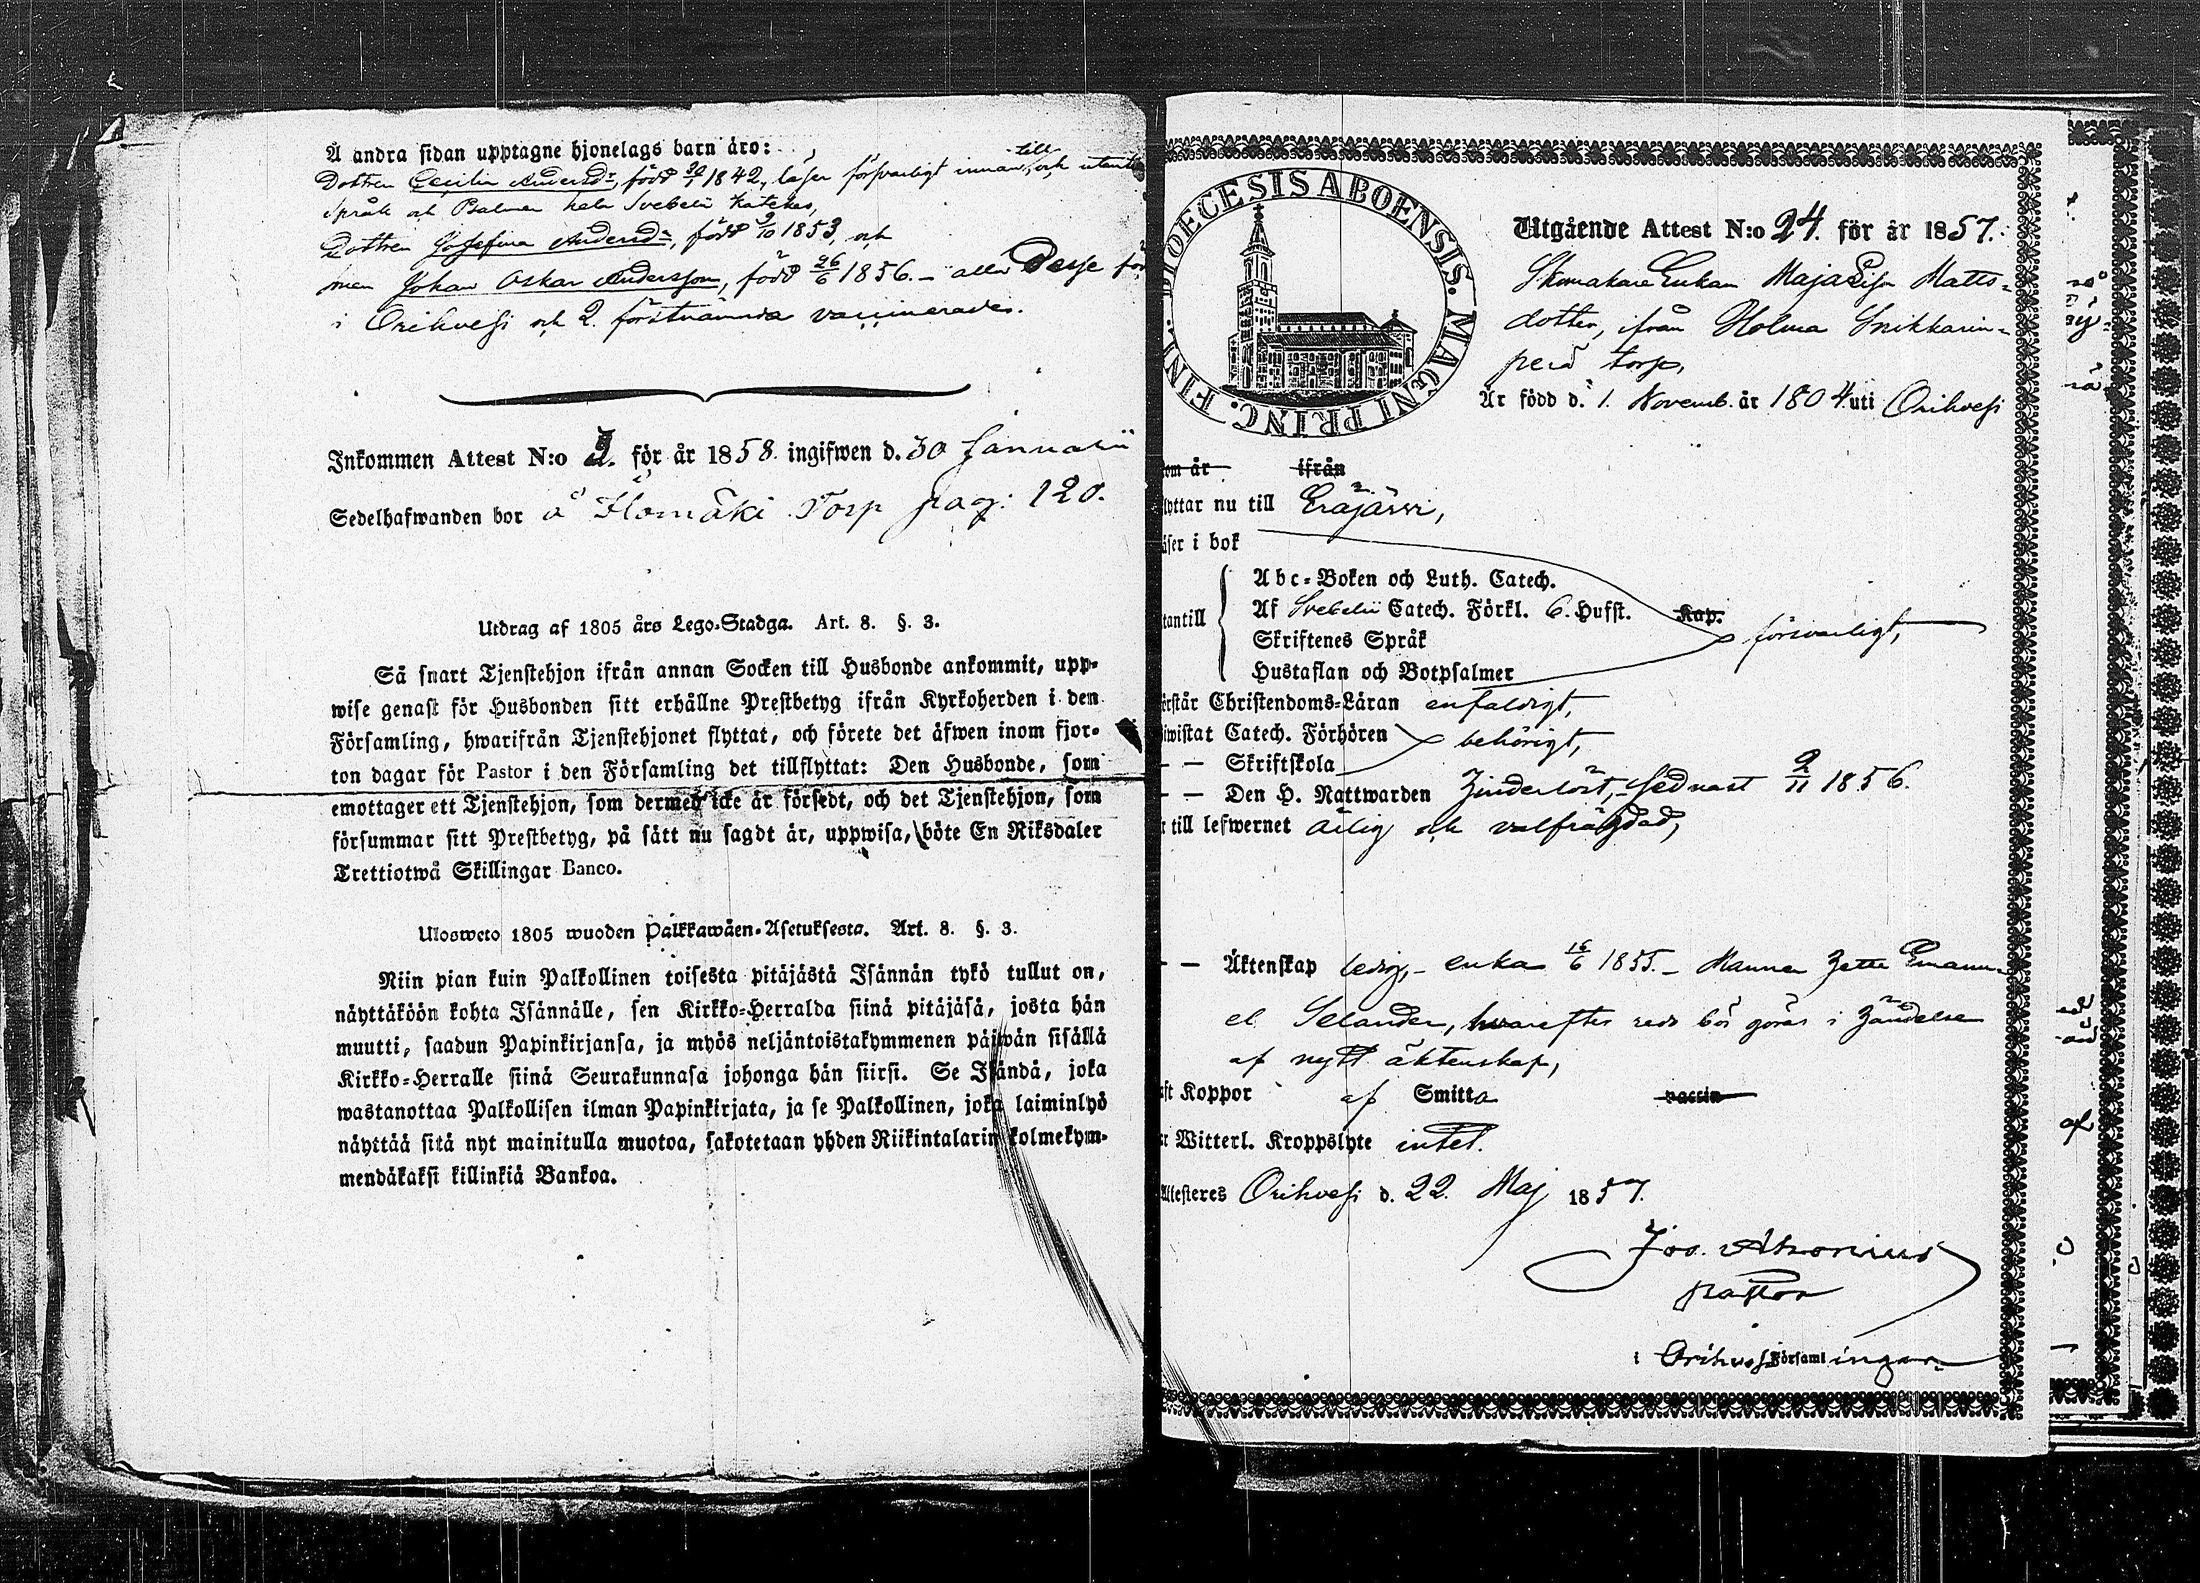 Å andra sidan upptagne hjonelags barn äro:
Dottren Cecilia Andersdr, född 30/1 1842, läser försvarligt innan till, och utantill
Språk och Psalmer hela Svebelii Kateches,
Dottren Josefina Andersdr, född 9/10 1853, och
Johan Oskar Andersson, född 26/6 1856. – alla Desse
i Orihvesi och 2. förstnämnda vaccinerade.
Inkommen Attest N:o 3. för år 1858. ingifwen d. 30 Januarii
Sedelhafwanden bor å Ilomäki Torp pag: 120.
Utdrag af 1805 års Lego-Stadga. Art. 8. §. 3.
Så snart Tjenstehjon ifrån annan Socken till Husbonde ankommit, upp-
wise genast för Husbonden sitt erhållne Prestbetyg ifrån Kyrkoherden i den
Församling, hwarifrån Tjenstehjonet flyttat, och förete det äfwen inom fjor-
ton dagar för Pastor i den Församling det tillflyttat: Den Husbonde, som
emottager ett Tjenstehjon, som dermed icke är försedt, och det Tjenstehjon, som
försummar sitt Prestbetyg, på sätt nu sagdt är, uppwisa, böte En Riksdaler
Trettiotwå Skillingar Banco.
Ulosweto 1805 wuoden Palkkawäen-Asetuksesta. Art. 8. §. 3.
Niin pian kuin Palkollinen toisesta pitäjästä Isännän tykö tullut on,
näyttäköön kohta Isännälle, sen Kirkko-Herralda siinä pitäjäsä, josta hän
muutti, saadun Papinkirjansa, ja myös neljäntoistakymmenen päiwän sisällä
Kirkko-Herralle siinä Seurakunnasa johonga hän siirsi. Se Isändä, joka
wastanottaa Palkollisen ilman Papinkirjata, ja se Palkollinen, joka laiminlyö
näyttää sitä nyt mainitulla muotoa, sakotetaan yhden Riikintalarin kolmekym-
mendäkaksi killinkiä Bankoa.
DIOECESIS ABOENSIS. MAGNI PRINC. FINL.
Utgående Attest N:o 24. för år 1857.
Skomakare Enkan Maja Lisa Matts-
dotter, ifrån Holma Snikkarin-
perä torp,
Är född d. 1. Novemb. år 1804 uti Orihvesi
om år ifrån
lyttar nu till Eräjärvi,
äser i bok
Abc-Boken och Luth. Catech.
tantill Af Svebelii Catech. Förkl. 6. Hufst. Kap. försvarligt,
Skriftenes Språk
Hustaflan och Botpsalmer
örstår Christendoms-Läran enfaldigt,
iwistat Catech. Förhören behörigt,
– – Skriftskola
– – Den H. Nattwarden hinderlöst, sednast 9/11 1856.
r till lefwernet ärlig och välfrägdad,
– – Äktenskap ledig, – enka 16/6 1855. – Mannen hette Emanu-
el Selander, hvarefter reda bör göras i händelse
af nytt äktenskap,
ft Koppor af Smitta vaccin
r Witterl. Kroppslyte intet.
Attesteres Orihvesi d. 22. Maj 1857.
Jos. Ahonius
pastor
i Orihvesi Församlingar